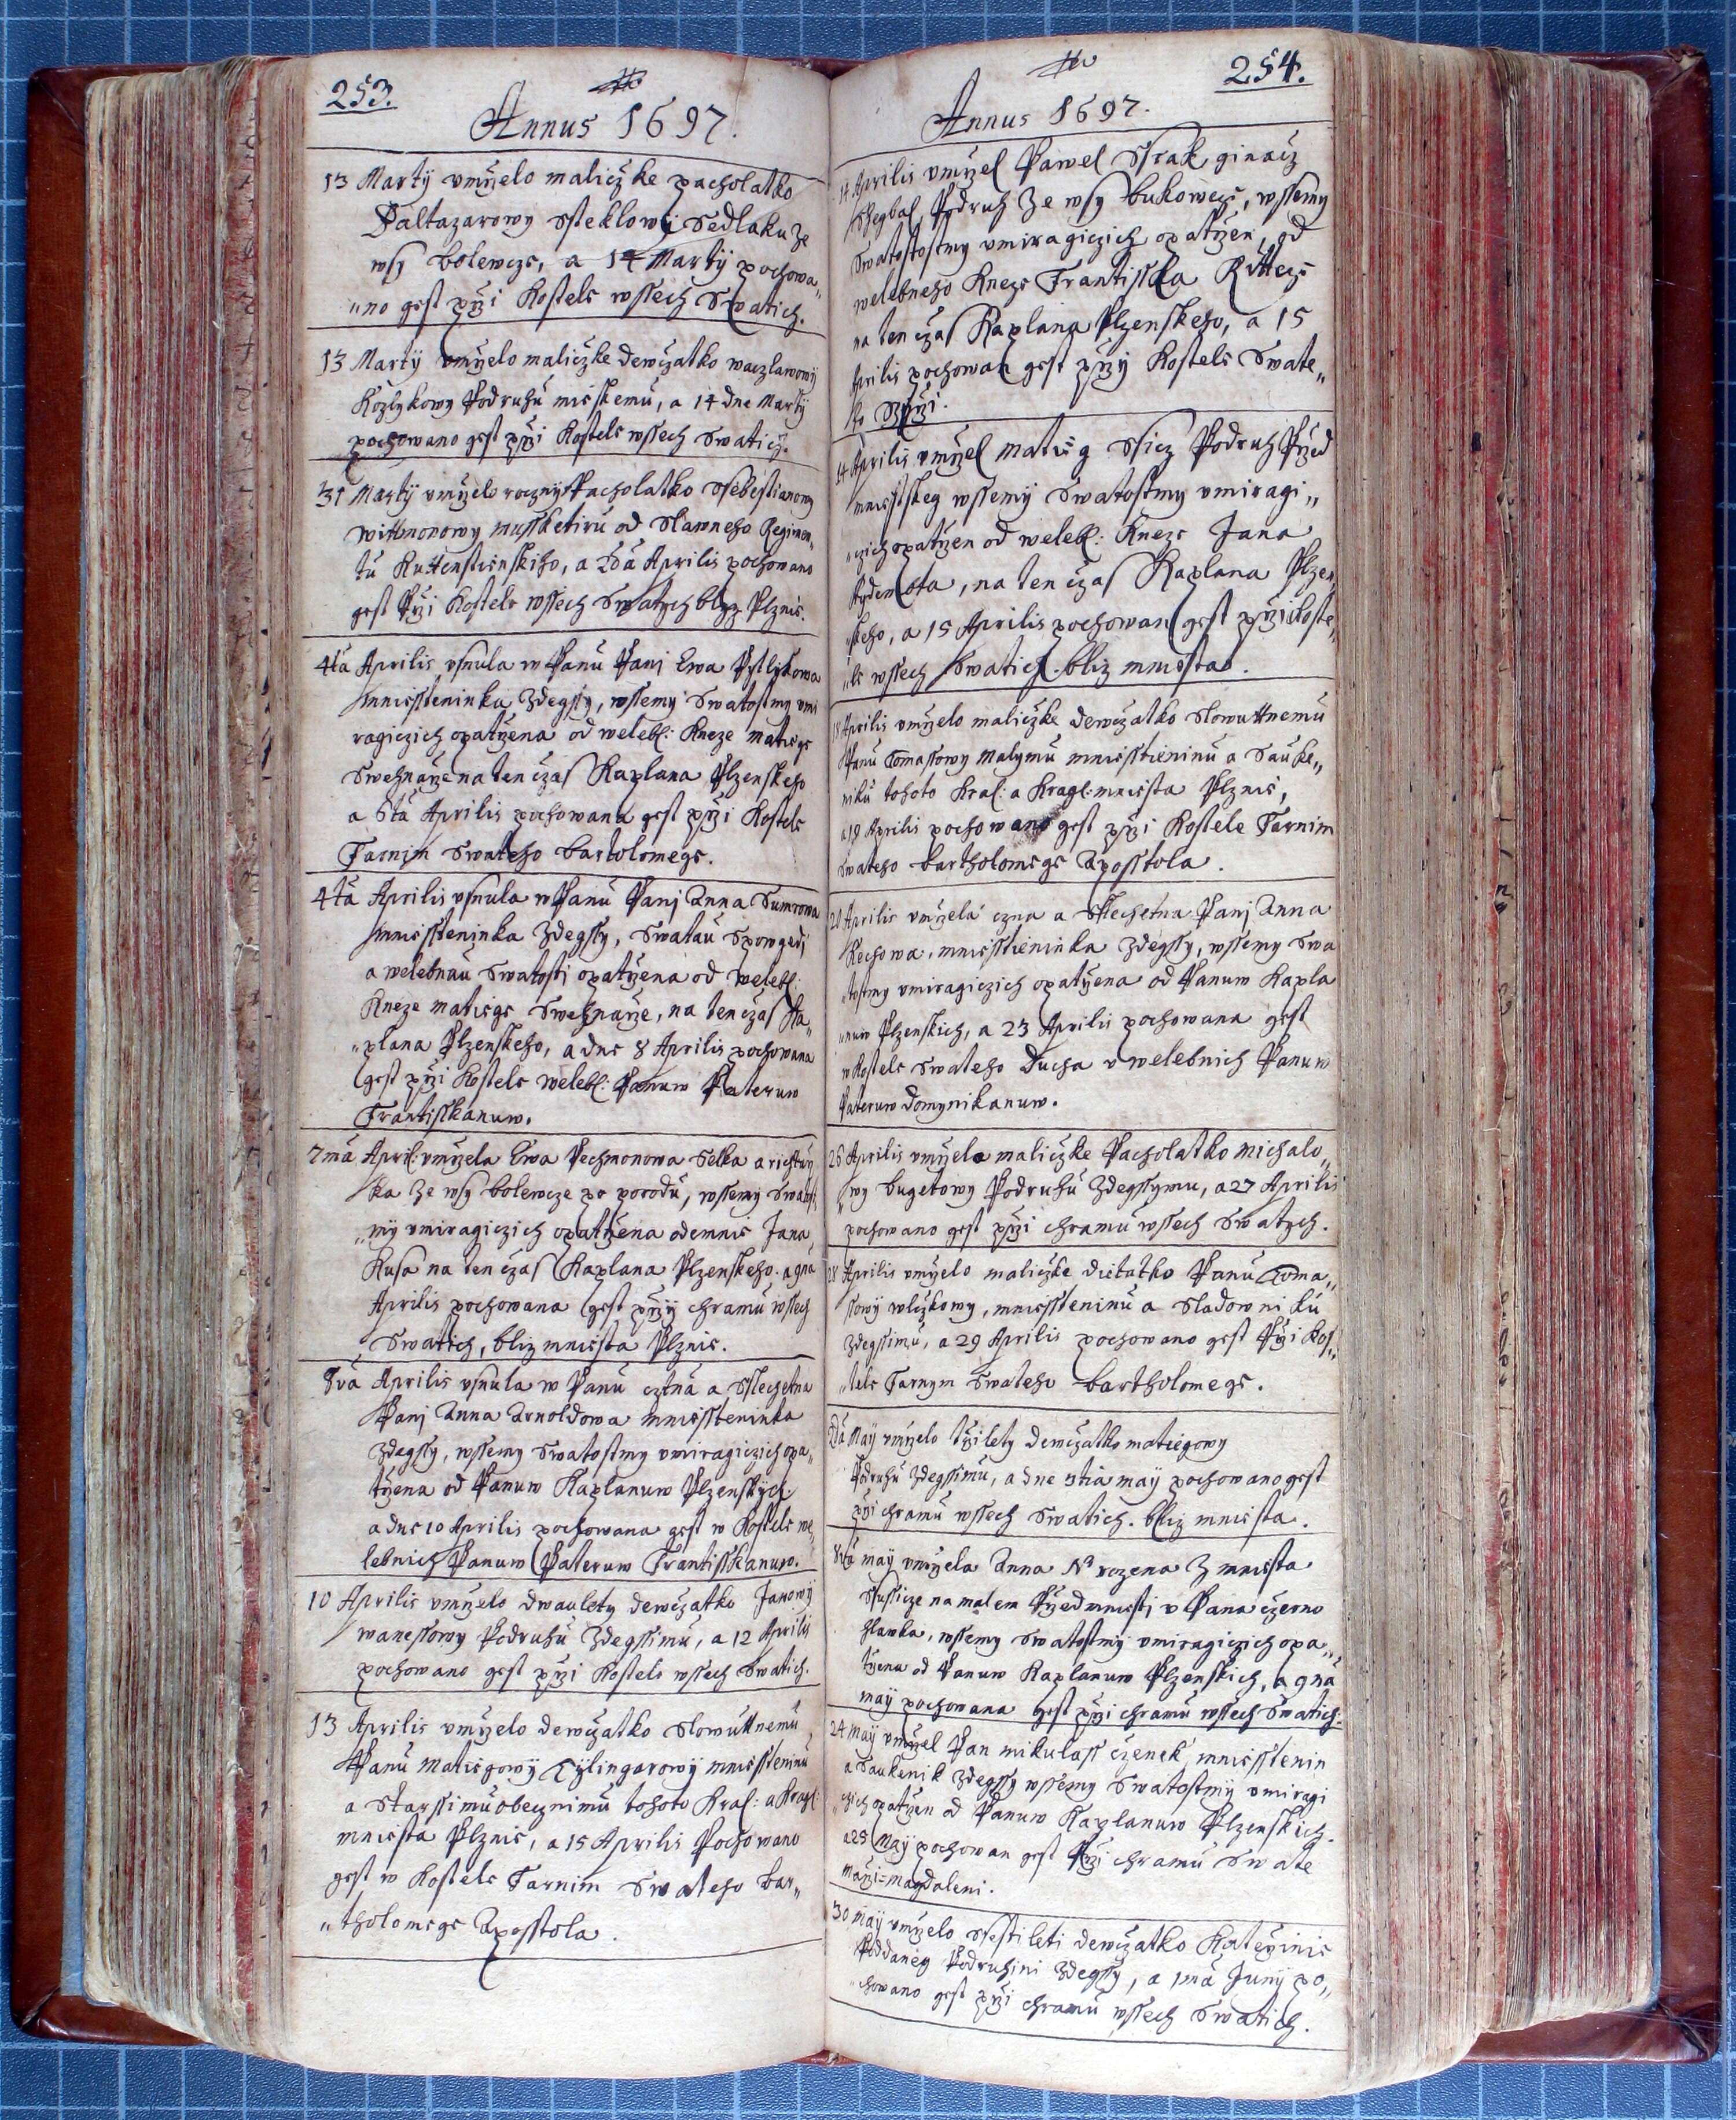 253.
Annus 1697.
13 Martÿ vmrželo maličžke pacholatko
Baltazarowy Ssteklowi Sedlaku ze
wsy bolewcze, a 14 Martÿ pochowa„
„no gest przi Kostele wssech Swatich.
13 Martÿ vmrželo maličžke dewčžatko waczlawowÿ
Kozlykowy Podruhu miesskemu, a 14 dne Martÿ
pochowano gest przi Kostele wssech Swatich.
31 Martÿ vmrželo roczny Pacholatko Ssebestianowy
Wittmonowy mussketiru od Slawneho Regimen„
tu Kuttenstienskiho, a 2da Aprilis pochowano
gest Przi Kostele wssech Swatych blyz Plznie.
4ta Aprilis vsnula w Panu Pani Ewa Pytlykowa
mniesstieninka Zdegssy, wssemy Swatostmy vmi
ragiczich opatržena od weleb: Kneze Matiege
Swehnarže na ten čžas Kaplana Plzenskeho
a 5ta Aprilis pochowana gest przi Kostele
Farnim Swateho bartolomege.
4ta Aprilis vsnula w Panu Pani Anna Sumrowa
mniessteninka Zdegssy, Swatau Spowgedi
a welebnau Swatosti opatržena od weleb:
Kneze matiege Swehnarže, na ten čžas Ka„
„plana Plzenskeho, a dne 8 Aprilis pochowana
gest przi Kostele weleb: Panuw Pateruw
Frantisskanuw.
7ma April: vmržela Ewa Pechmonowa Selka a richtarž
ka ze wsy bolewcze po porodu, wssemy Swatost
„mÿ vmiragiczich opatržena odemnie Jana
Kusa na ten čžas Kaplana Plzenskeho. a 9na
Aprilis pochowana gest przÿ chramu wssech
Swatich, bliz mniesta Plznie.
8va Aprilis vsnula w Panu cztna a Sslechetna
Pani Anna Arnoldowa mniessteninka
Zdegssy, wssemy Swatostmy vmiragiczich opa„
tržena od Panuw Kaplanuw Plzenskÿch
a dne 10 Aprilis pochowana gest w Kostele we„
lebnich Panuw Pateruw Frantisskanuw.
10 Aprilis vmrželo dwaulety dewčžatko Janowÿ
wanessowy Podruhu Zdegssimu, a 12 Aprilis
pochowano gest przi Kostele wssech Swatich.
13 Aprilis vmrželo dewčžatko Slowuttnemu
Panu Matiegowÿ Tÿlingarowÿ mniesstieninu
a Starssimu obecznimu tohoto Kral: a Kragl:
mniesta Plznie, a 15 Aprilis Pochowano
gest w Kostele Farnim Swateho bar„
„tholomege Aposstola.
254.
Annus 1697.
14 Aprilis vmržel Pawel Strak ginacz
Podruh ze wsy bukowecz, wssemy
Swatostmy vmiragiczich opatržen, od
welebneho Kneze Frantisska Ritteze
na ten čžas Kaplana Plzenskeho, a 15
Aprilis pochowan gest przÿ Kostele Swate„
ho Grži.
14 Aprilis vmržel matieg Ssicz Podruh Przed
mniestskeg wssemÿ Swatostmy vmiragi„
„czich opatržen od weleb: Kneze Jana
na ten čžas Kaplana Plzen
skeho, a 15 Aprilis pochowan gest przi Koste„
„le wssech Swatich bliz mniesta.
18 Aprilis vmrželo maličžke dewčžatko Slowuttnemu
Panu Tomassowy Malymu mniesstieninu a Sauke„
niku tohoto Kral: a Kragl: mniesta Plznie,
a 19 Aprilis pochowano gest przi Kostele Farnim
Swateho Bartholomege Aposstola.
Aprilis vmržela czna a Sslechetna Pani Anna
Kechowa, mniesstieninka Zdegssy, wssemy Swa
tostmy vmiragiczich opatržena od Panuw Kapla
„nuw Plzenskich, a 23 Aprilis pochowana gest
w Kostele Swateho Ducha v welebnich Panuw
Pateruw Domynikanuw.
26 Aprilis vmrželo maličžke Pacholatko Michalo„
wy bugetowy Podruhu Zdegssymu, a 27 Aprilis
pochowano gest przi chramu wssech Swatych.
28 Aprilis vmrželo maličžke dietatko Panu Toma„
ssowÿ wlčžkowy, mniessteninu a Sladowniku
Zdegssimu, a 29 Aprilis pochowano gest Przi Kos„
„tele Farnym Swateho bartholomege.
2da Maÿ vmrželo tržilety dewčžatko matiegowy
Podruhu Zdegssimu, a dne 4ta maÿ pochowano gest
przi chramu wssech Swatich. bliz mniesta.
8va maÿ vmržela Anna N rozena z mniesta
Sussicze na malem Przedmniesti v Pana čžerno
hlawka, wssemy Swatostmÿ vmiragiczich opa„
tržena od Panuw Kaplanuw Plzenskich, a 9na
maÿ pochowana gest przi chramu wssech Swatich.
24 maÿ vmržel Pan mikulass čženek mniesstenin
a Saukenik Zdegssy wssemy Swatostmÿ vmiragi
„czich opatržen od Panuw Kaplanuw Plzenskich.
a 25 Maÿ pochowan gest Przi chramu Swate
Marži=Magdaleni.
30 Maÿ vmrželo Ssestileti dewčžatko Kateržinie
Poddaneg Podruhini Zdegssy, a 1ma Junÿ po„
„chowano gest przi chramu wssech Swatich.